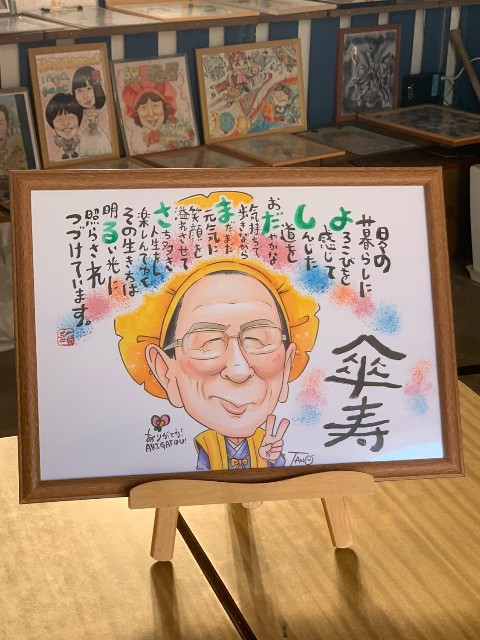 日々の
暮らしに
よろこびを
感じて
しんじた
道を
おだやかな
気持ちで
歩きながら
まだまだ
元気に
笑顔を
溢れさせて
さち多き
人生を
楽しんでゆく
その生き方は
明るい光に
照らされ
つづけています。
傘寿
ありがとう!
ARIGATOU!